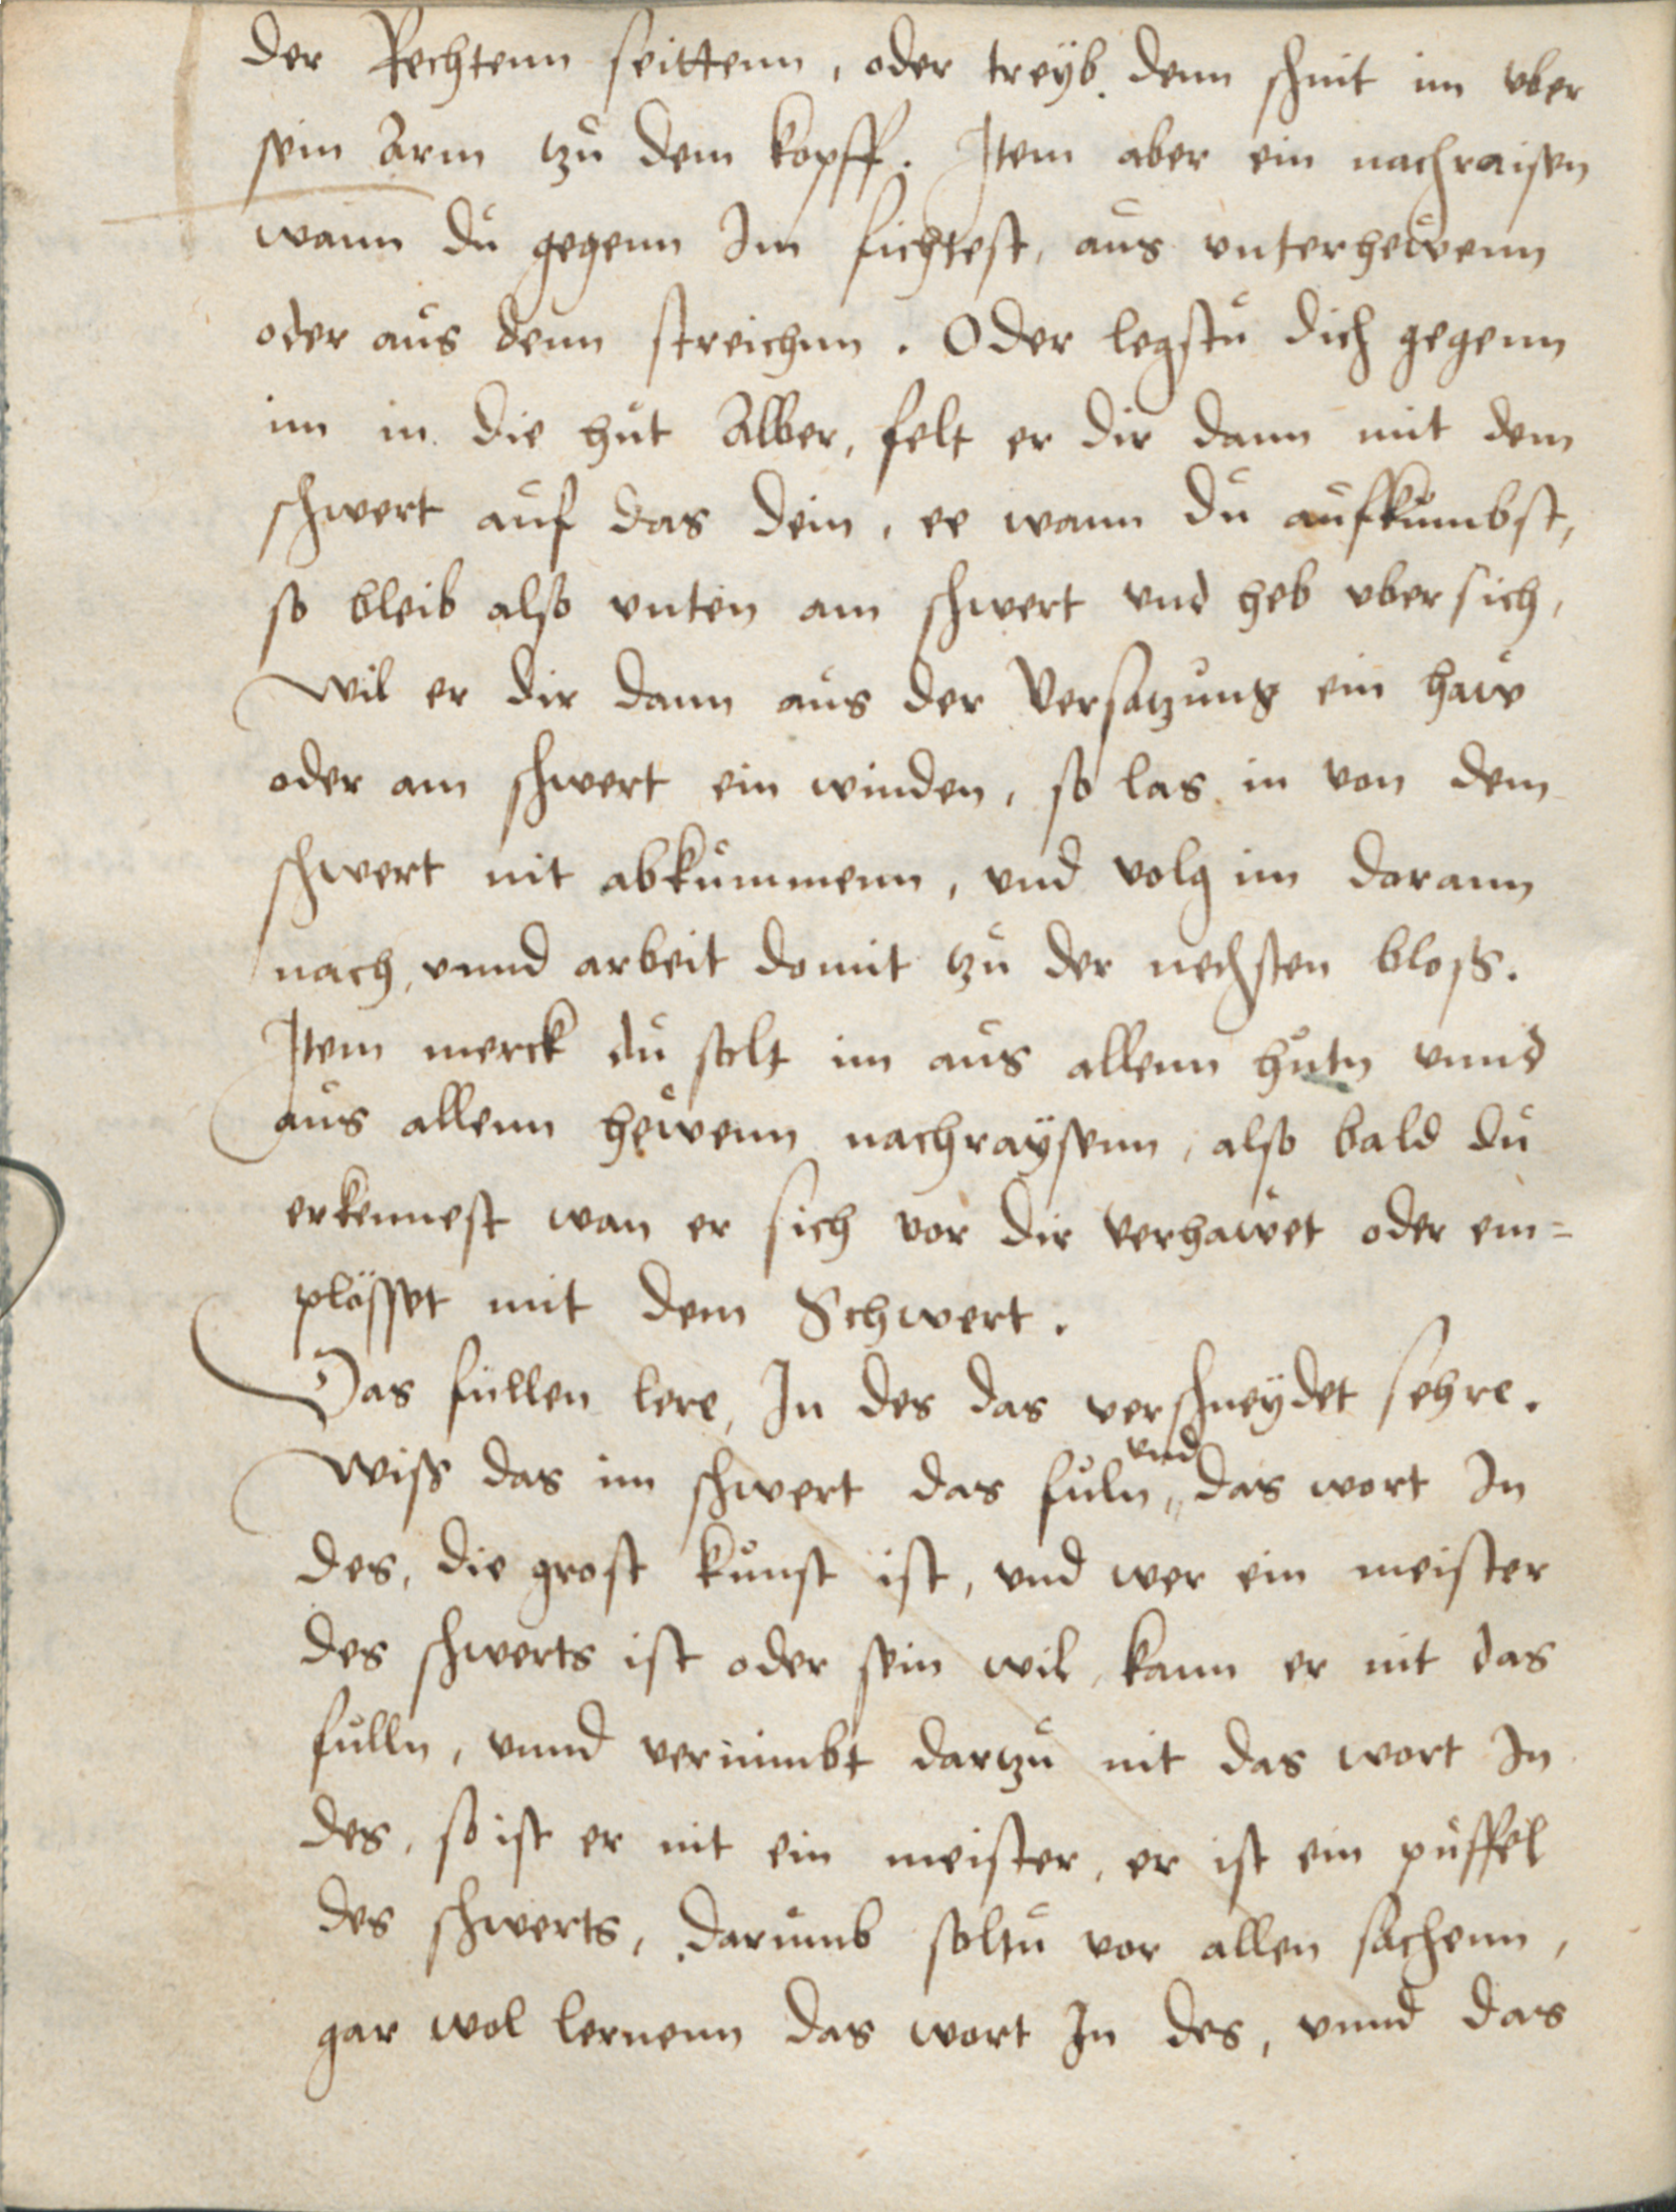 der Rechtenn seittenn, oder treyb denn schnit im vber
sein Arm tzu dem kopff. Item aber ein nachraisen
wann du gegenn Im fichtest, aus vnterhewenn
oder aus denn streichnn. Oder legstu dich gegenn
im in die hut Alber, felt er dir dann mit dem
schwert auf das dein, ee wann du aufkumbst,
so bleib also vnten am schwert vnd heb vbersich,
wil er dir dann aus der Versatzung ein haw
oder am schwert ein winden, so las in von dem
schwert nit abkummenn, vnd volg im darann
nach, vnnd arbeit domit tzu der nechsten bloß.
Item merck du solt im aus allenn hutn vnnd
aus allenn hewenn nachraysenn, also bald du
erkennest wan er sich vor dir verhawet oder em=
plösset mit dem Schwert.
Das füllen lere, In des das verschneydet sehre.
Wiss das im schwert das fuln, vnd das wort In
des, die grost kunst ist, vnd wer ein meister
des schwerts ist oder sein wil, kann er nit das
fulln, vnnd vernimbt dartzu nit das wort In
des, so ist er nit ein meister, er ist ein puffel
des schwerts, darumb soltu vor allen sachenn,
gar wol lernenn das wort In des, vnnd das